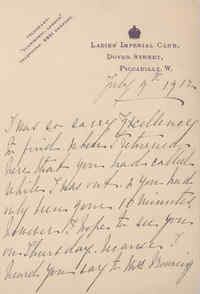 LADIES' IMPERIAL CLUB,
DOVER STREET,
PICCADILLY, W.
July 9th 1912
I was so sorry Excellency
to find when I returned
here that you had called
while I was out & you had
only been gone 10 minutes
However I hope to see you
on Thursday. because I
heard you say to Miss